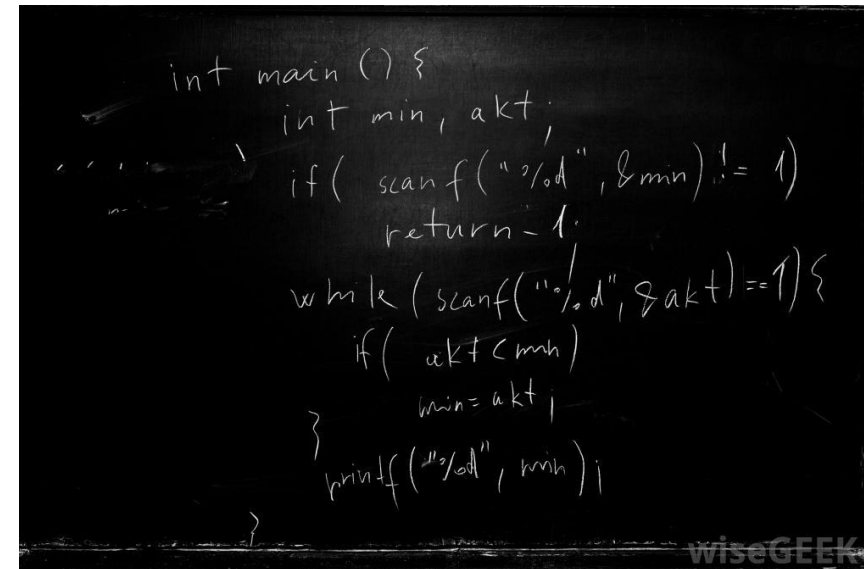 int main () {
int min, akt;
if( scanf("%d", &min) != 1)
return -1;
while (scanf("%d", &akt) ==1) {
if( akt < min)
min = akt;
}
printf("%d", min);
}
wiseGEEK